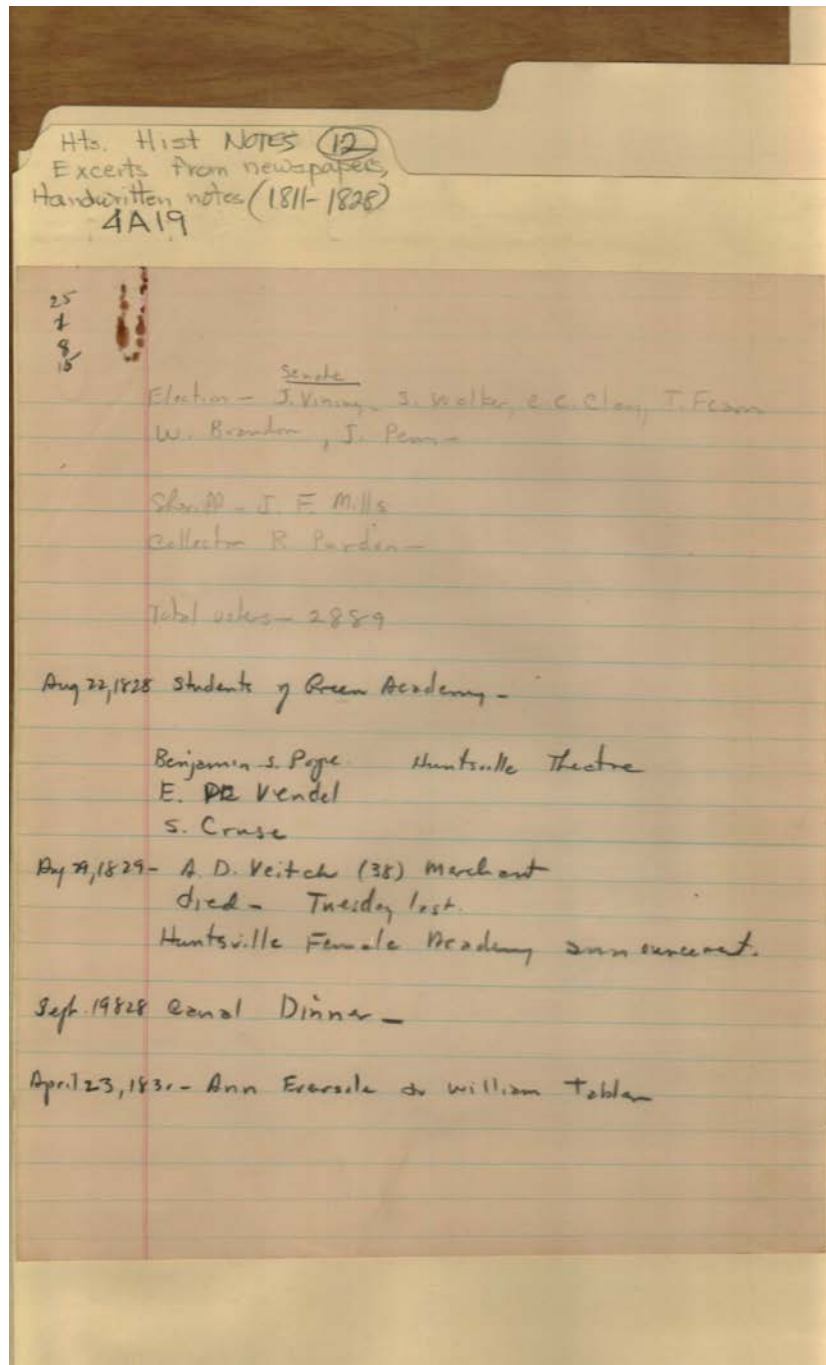 Hts. Hist NOTES (12)
Excerts from newspapers,
Handwritten notes (1811-1828)
4A19
25
1
8
15
Senate
Election - J. Vining, S. Walker, C. C. Clay, T. Fearn
W. Brandon, J. Penn -
Sheriff - J. F. Mills
Collector R Purdom -
Total voters - 2889
Aug 22, 1828 Students of Green Academy -
Benjamin S. Pope Huntsville Theatre
E. Vendel
S. Cruse
Aug 29, 1829 - A. D. Veitch (38) Merchant
died - Tuesday last.
Huntsville Female Academy announcement.
Sept. 19 828 Canal Dinner -
April 23, 183 - Ann Eversile William